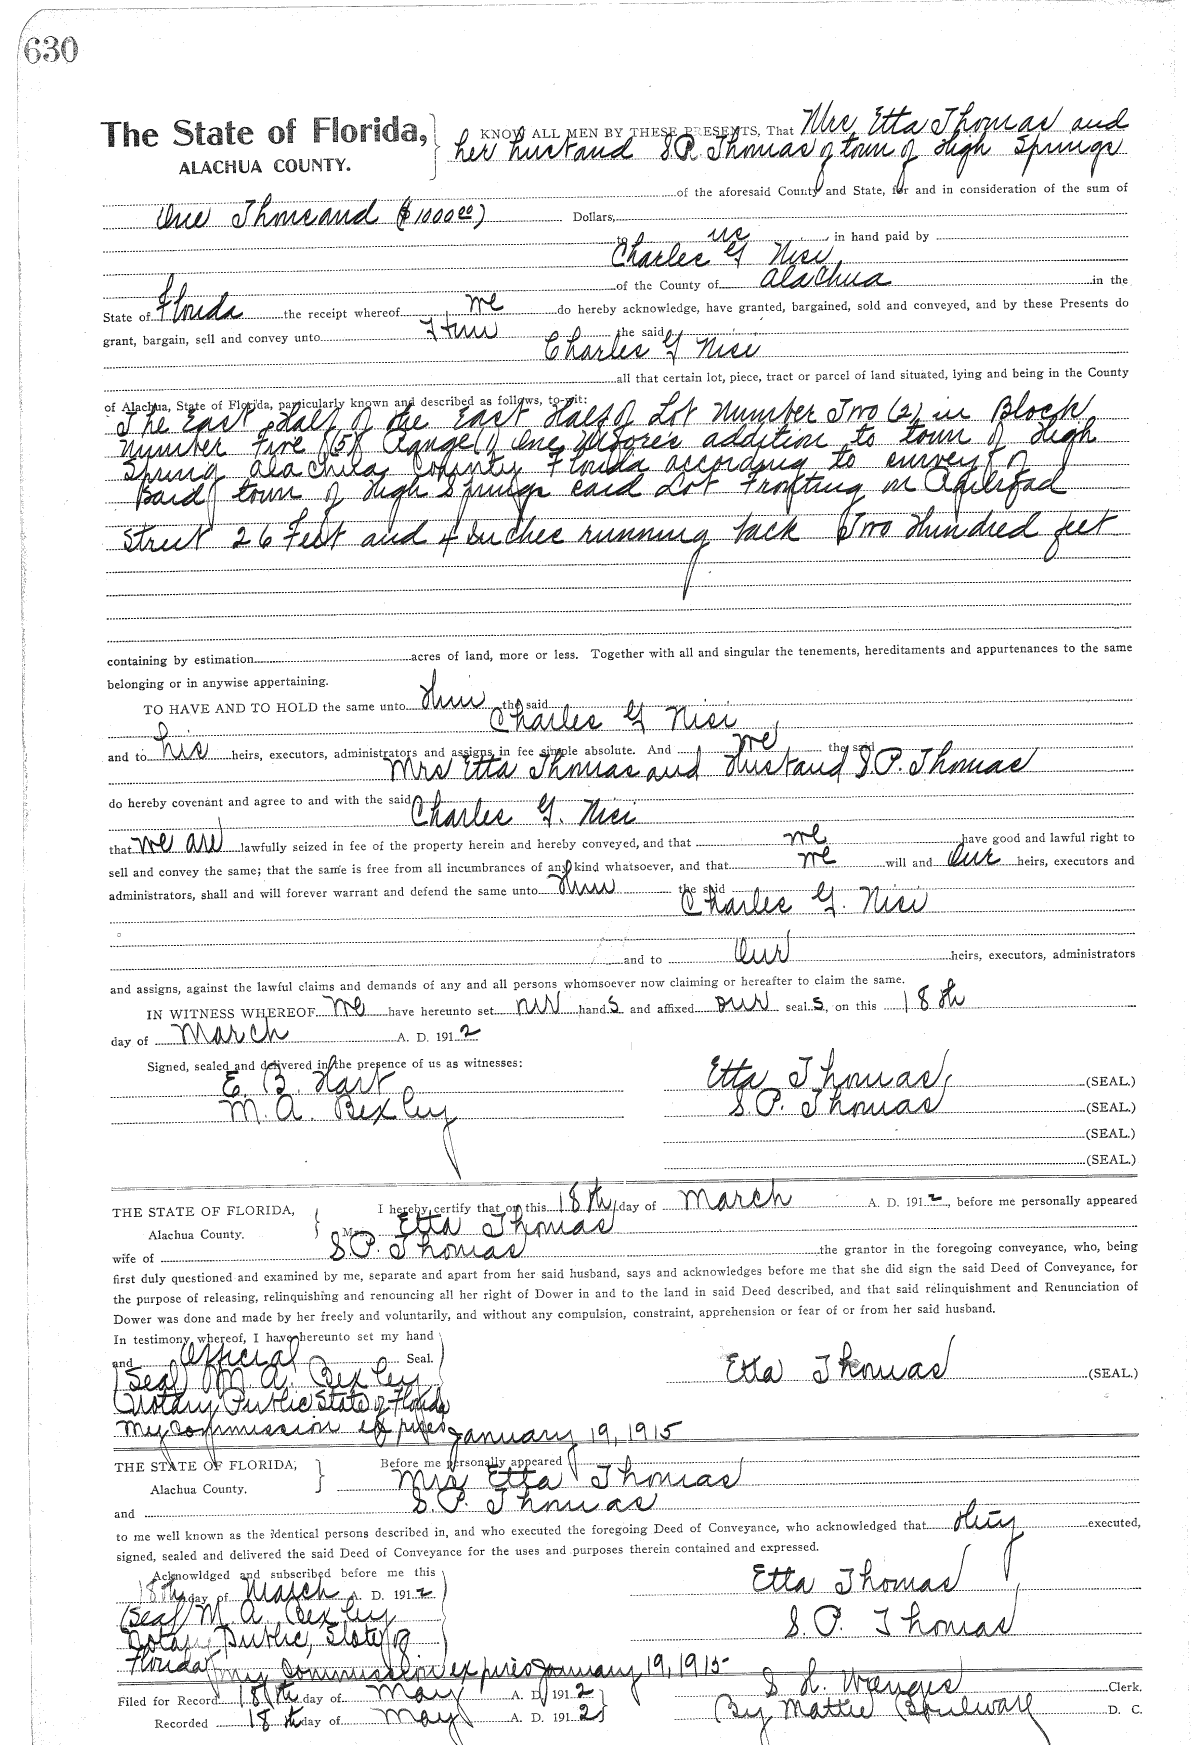 630
The State of Florida,
ALACHUA COUNTY.
KNOW ALL MEN BY THESE PRESENTS, That Mrs Etta Thomas and
her husband S P. Thomas of town of High Springs
of the aforesaid County and State, for and in consideration of the sum of
One Thousand ($1000 00) Dollars,
to us in hand paid by
Charles G Nisi
of the County of Alachua in the
State of Florida the receipt whereof we do hereby acknowledge, have granted, bargained, sold and conveyed, and by these Presents do
grant, bargain, sell and convey unto him the said
Charles G Nisi
all that certain lot, piece, tract or parcel of land situated, lying and being in the County
of Alachua, State of Florida, particularly known and described as follows, to-wit:
The East Half of the East Half of Lot Number Two (2) in Block
Number Five (5) Range One Moores addition to town of High
Spring Alachua County Florida according to survey of
Said town of High Springs said Lot Fronting on Railroad
Street 26 Feet and 4 Inches running back Two Hundred feet
containing by estimation acres of land, more or less. Together with all and singular the tenements, hereditaments and appurtenances to the same
belonging or in anywise appertaining.
TO HAVE AND TO HOLD the same unto him the said
Charles G Nisi
and to his heirs, executors, administrators and assigns in fee simple absolute. And we the said
Mrs Etta Thomas and Husband S P. Thomas
do hereby covenant and agree to and with the said
Charles G. Nisi
that we are lawfully seized in fee of the property herein and hereby conveyed, and that we have good and lawful right to
sell and convey the same; that the same is free from all incumbrances of any kind whatsoever, and that we will and Our heirs, executors and
administrators, shall and will forever warrant and defend the same unto him the said
Charles G. Nisi
and to Our heirs, executors, administrators
and assigns, against the lawful claims and demands of any and all persons whomsoever now claiming or hereafter to claim the same.
IN WITNESS WHEREOF we have hereunto set our hands and affixed our seals, on this 18th
day of March A. D. 1912
Signed, sealed and delivered in the presence of us as witnesses:
E. B. Hart
Etta Thomas (SEAL.)
M. A. Bexley
S. P. Thomas (SEAL.)
(SEAL.)
(SEAL.)
THE STATE OF FLORIDA,
Alachua County.
I hereby certify that on this 18th day of March A. D. 1912, before me personally appeared
Etta Thomas
wife of S P. Thomas the grantor in the foregoing conveyance, who, being
first duly questioned and examined by me, separate and apart from her said husband, says and acknowledges before me that she did sign the said Deed of Conveyance, for
the purpose of releasing, relinquishing and renouncing all her right of Dower in and to the land in said Deed described, and that said relinquishment and Renunciation of
Dower was done and made by her freely and voluntarily, and without any compulsion, constraint, apprehension or fear of or from her said husband.
In testimony whereof, I have hereunto set my hand
and Official Seal.
(Seal) M. A. Bexley
Etta Thomas (SEAL.)
Notary Public State of Florida
My Commission expires January 19, 1915
THE STATE OF FLORIDA,
Alachua County.
Before me personally appeared
Mrs Etta Thomas
and S. P. Thomas
to me well known as the identical persons described in, and who executed the foregoing Deed of Conveyance, who acknowledged that they executed,
signed, sealed and delivered the said Deed of Conveyance for the uses and purposes therein contained and expressed.
Acknowldged and subscribed before me this
18th day of March A. D. 1912
Etta Thomas
(Seal) M. A. Bexley
S. P. Thomas
Notary Public, State of
Florida My Commission expires January 19, 1915
Filed for Record 18th day of May A. D. 1912
S. H. Wienges Clerk.
Recorded 18th day of May A. D. 1912
By Mattie Boulware D. C.